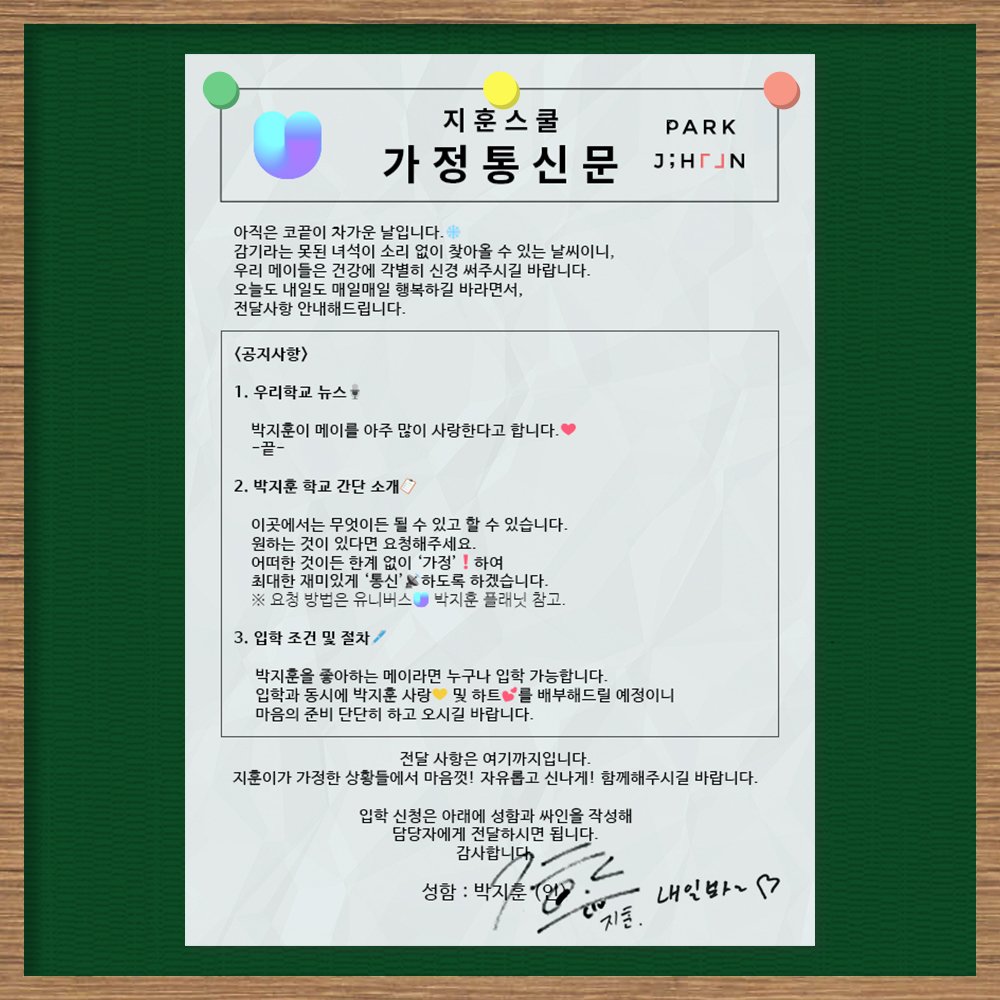 지훈스쿨
가정통신문
PARK
J;H「」N
아직은 코끝이 차가운 날입니다.❄️
감기라는 못된 녀석이 소리 없이 찾아올 수 있는 날씨이니,
우리 메이들은 건강에 각별히 신경 써주시길 바랍니다.
오늘도 내일도 매일매일 행복하길 바라면서,
전달사항 안내해드립니다.
<공지사항>
1. 우리학교 뉴스🎙️
박지훈이 메이를 아주 많이 사랑한다고 합니다.❤️
-끝-
2. 박지훈 학교 간단 소개📋
이곳에서는 무엇이든 될 수 있고 할 수 있습니다.
원하는 것이 있다면 요청해주세요.
어떠한 것이든 한계 없이 ‘가정’❗하여
최대한 재미있게 ‘통신’📡하도록 하겠습니다.
※ 요청 방법은 유니버스 박지훈 플래닛 참고.
3. 입학 조건 및 절차🖊️
박지훈을 좋아하는 메이라면 누구나 입학 가능합니다.
입학과 동시에 박지훈 사랑💛 및 하트💕를 배부해드릴 예정이니
마음의 준비 단단히 하고 오시길 바랍니다.
전달 사항은 여기까지입니다.
지훈이가 가정한 상황들에서 마음껏! 자유롭고 신나게! 함께해주시길 바랍니다.
입학 신청은 아래에 성함과 싸인을 작성해
담당자에게 전달하시면 됩니다.
감사합니다.
성함 : 박지훈 (인)
지훈.
내일봐~ ♡